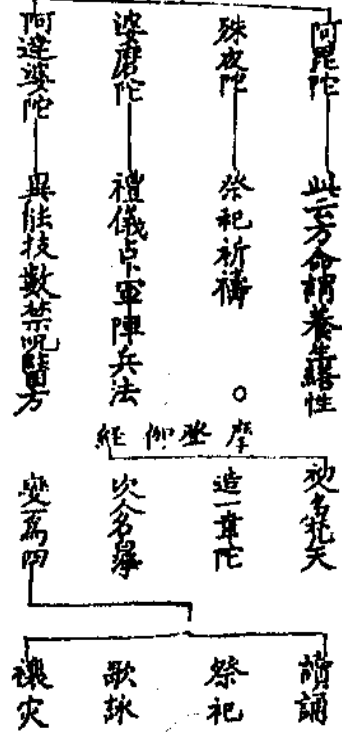 阿毘陀 此云方命謂養生繕性
殊夜陀 祭祀祈禱
娑磨陀 禮儀占卜軍陣兵法
阿達婆陀 異能技數禁咒醫方
○
摩登伽経
初名梵天
造一韋陀
次人名
變一為四
讃誦
祭祀
歌詠
禳灾